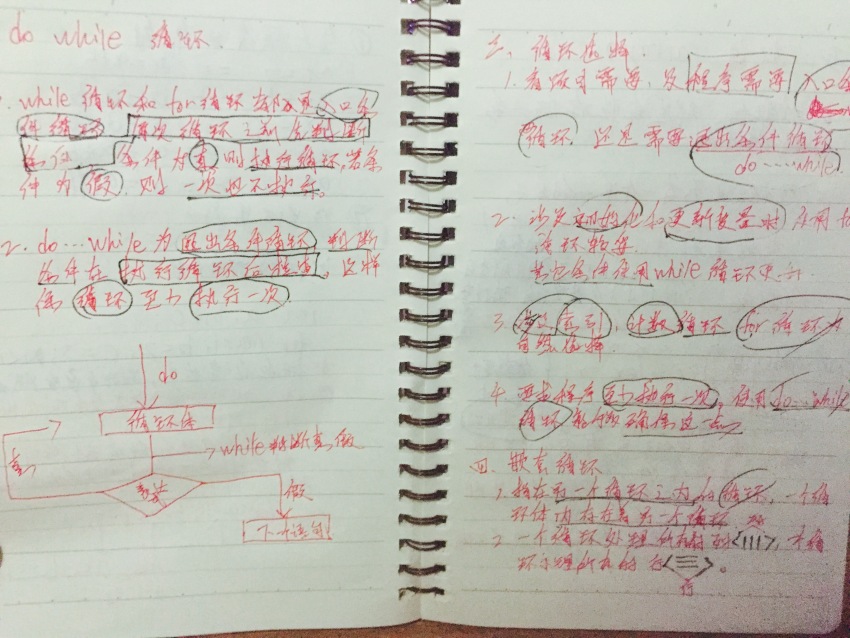 do while 循环.
1. while 循环和 for 循环 入口条
件循环 再次循环之前会判断
条件 条件为真 则执行循环,若条
件为假 则 一次也不执行。
2. do…while 为退出条件循环 判断
条件在执行循环后检查, 这样
循环至少执行一次
do
循环体
while 判断真假
真
假
下一语句
三、循环选择.
1. 看设计需要, 及程序需要 入口条
循环 还是需要退出条件循环
do……while.
2. 涉及初始化和更新变量时 使用fo
循环较好
其它条件使用while循环更好.
3. 索引, 计数循环 for 循环为
自然选择.
4. 要求程序至少执行一次, 使用do…while
循环 能够确保这点
四. 嵌套循环
1. 指在一个循环之内的循环, 一个循
环体内存在着另一个循环
2. 一个循环处理所有的列<|||>, 另循
环处理所有的行<三>。
行